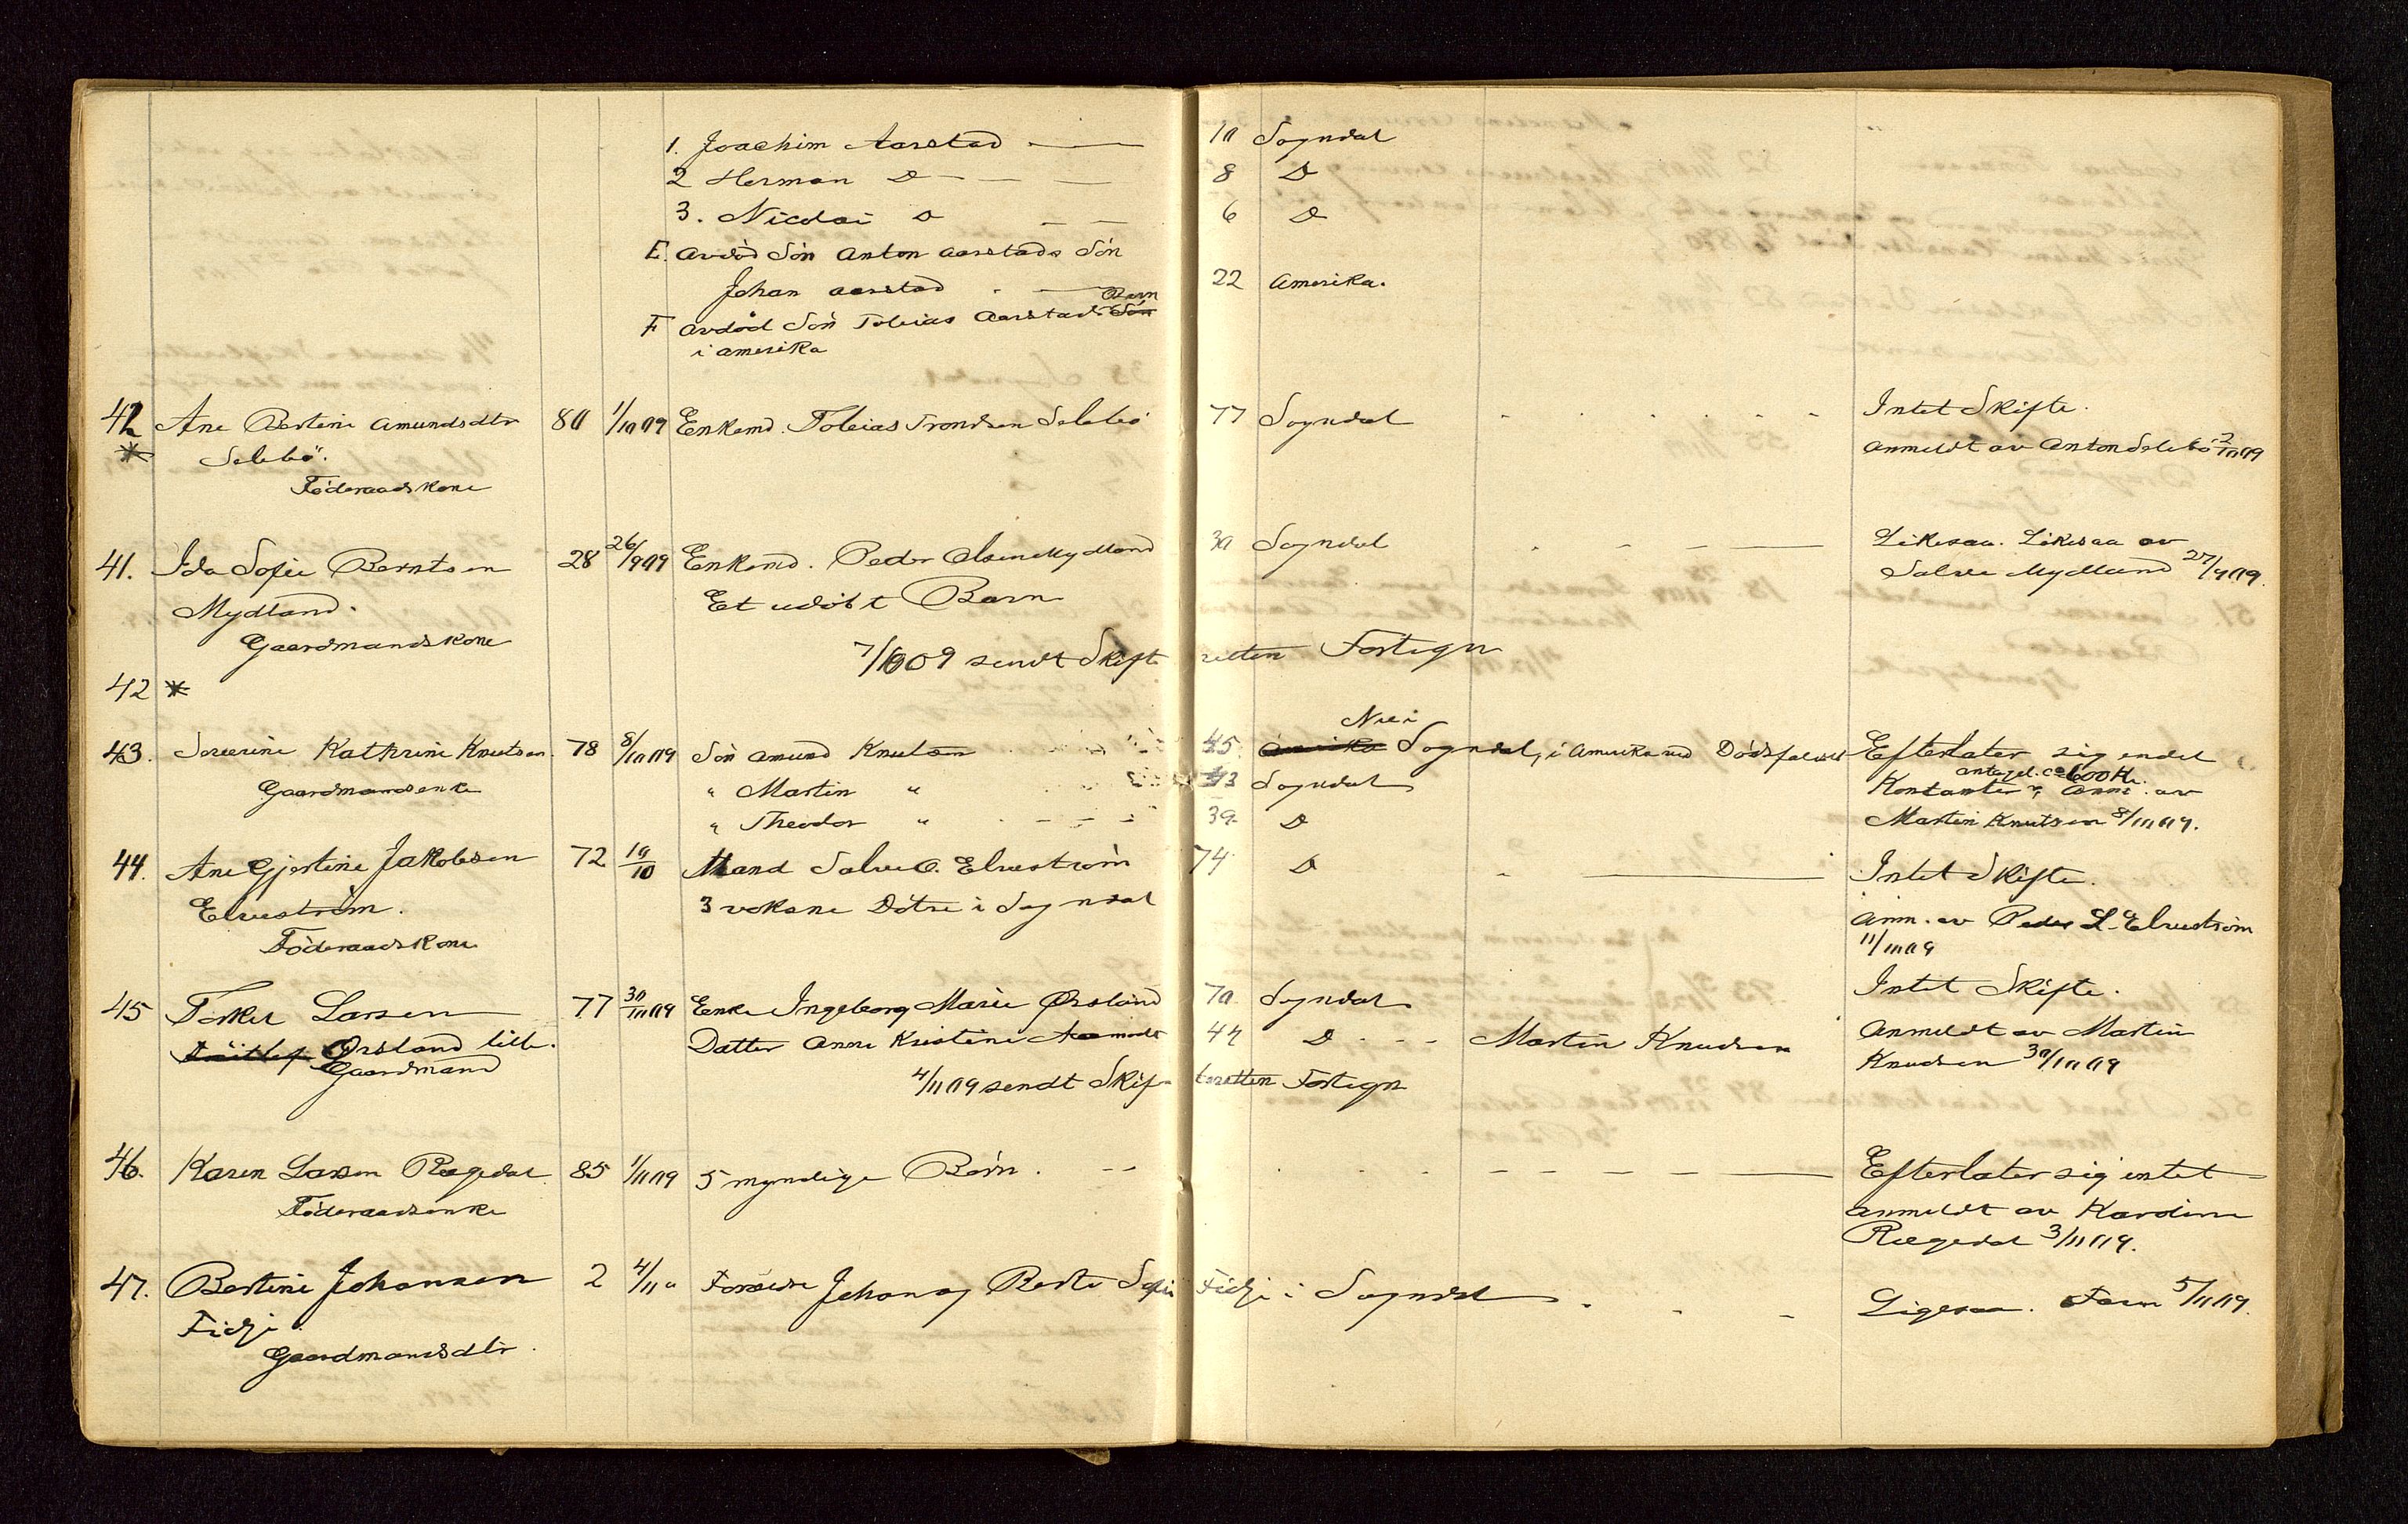 1. Joachim Aarstad — 10 Sogndal
2 Herman D — — — 8 D
3. Nicolai D — — 6 D
E. Avdød Søn Anton Aarstads Søn
Johan Aarstad . — 22 Amerika.
Barn
F Avdød Søn Tobias Aarstads Søn
i Amerika
42 Ane Bertine Amundsdtr 80 1/10 09 Enkemd. Tobias Trondsen Selebø 77 Sogndal Intet Skifte.
* Selebø. Anmeldt av Anton Selebø 2/10 09
Føderaadskone
41. Ida Sofie Berntsen 28 26/9 09 Enkemd. Peder Olsen Mydland 30 Sogndal — — — Likesaa. Likesaa av
Mydland. Et udøbt Barn Salve Mydland 27/9 09.
Gaardmandskone
7/10 09 sendt Skifteretten Fortegn
42 *
Nu i
43. Severine Kathrine Knutsen. 78 8/10 09 Søn Amund Knutsen 45. Amerika Sogndal, i Amerika ved Dødsfaldet Efterlater sig endel
antagel. ca 600 Kr.
Gaardmandsenke " Martin " 43 Sogndal Kontanter Anm. av
" Theodor " . — — 39. D Martin Knutsen 8/10 09.
44. Ane Gjertine Jakobsen 72 10/10 Mand Salve O. Elvestrøm 74 D — Intet Skifte.
Elvestrøm. 3 voksne Døtre i Sogndal
Anm. av Peder L. Elvestrøm
Føderaadskone 11/10 09
45 Torkel Larsen 77 30/10 09 Enke Ingeborg Marie Ørsland 70 Sogndal. Intet Skifte.
Ørsland lille. Datter Anne Kristine 44 D - - — Martin Knudsen Anmeldt av Martin
Gaardmand Knudsen 30/10 09
4/11 09 sendt Skifteretten Fortegn
46. Karen Larsen Rægedal 85 1/11 09 5 myndige Børn. - - — — — Efterlater sig intet
Føderaadsenke Anmeldt av Karoline
Rægedal 3/11 09.
47. Bertine Johansen 2 4/11 " Forældre Johan og Berte Sofie Fidje i Sogndal . - - Ligesaa. Faren 5/11 09.
Fidje.
Gaardmandsdtr.